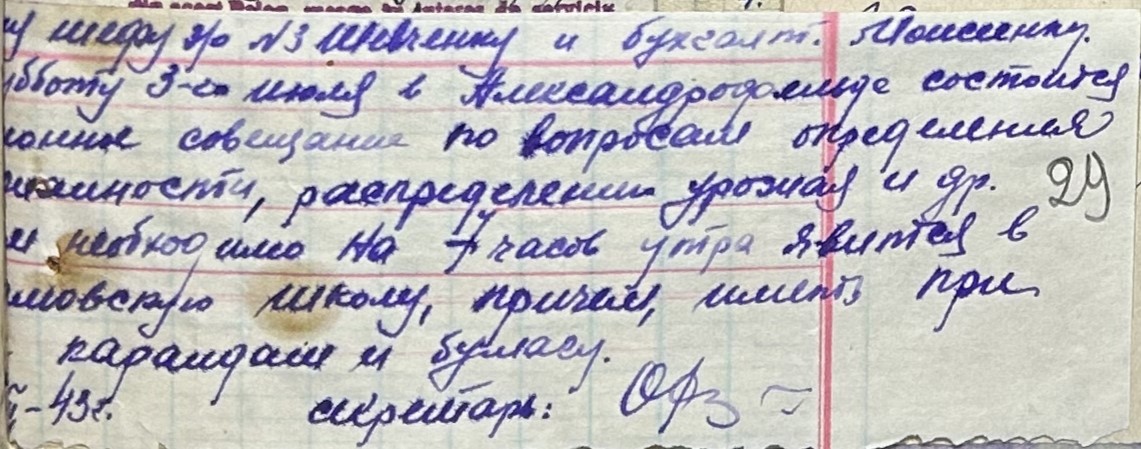 у шефу х/о №3 Шевченку и бухгалт. Моисенку.
бботу 3-го июля в Александродальце состоится
ионное совещание по вопросам определения
жайности, распределении урожая и др. 29
м необходимо на 7 часов утра явится в
мовскую школу, причем, иметь при
карандаш и бумагу.
-43г. секретарь: